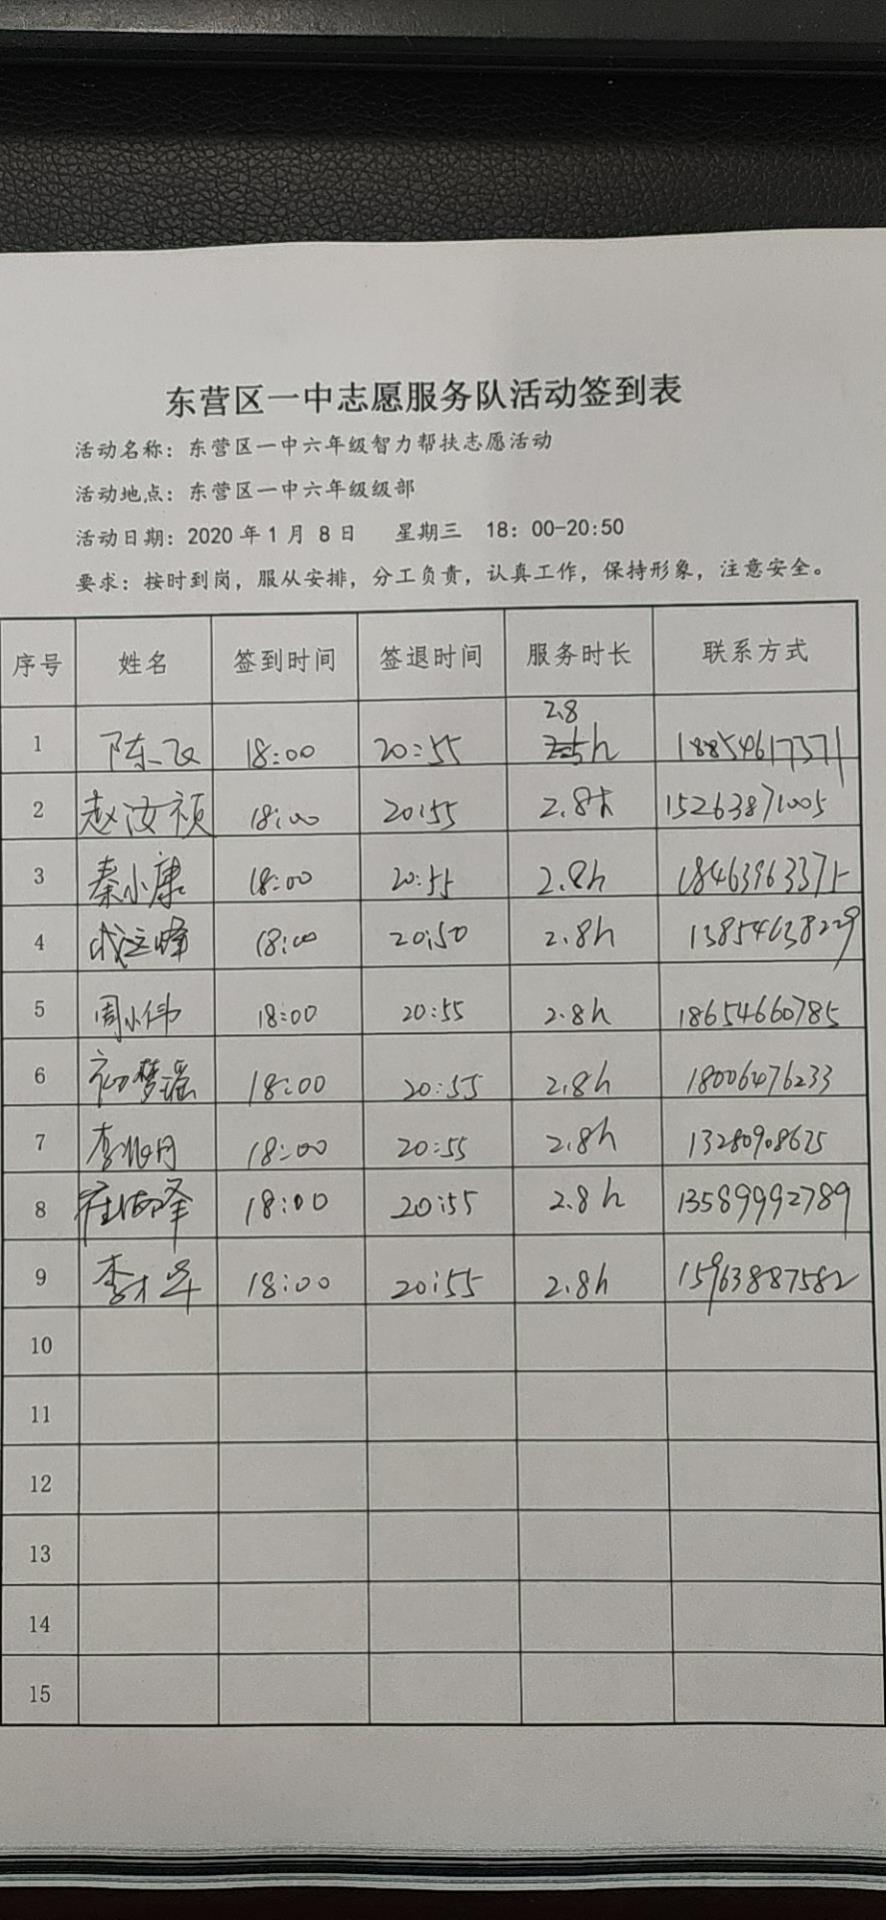 东营区一中志愿服务队活动签到表
活动名称：东营区一中六年级智力帮扶志愿活动
活动地点：东营区一中六年级级部
活动日期：2020年1月8日 星期三 18：00-20:50
要求：按时到岗，服从安排，分工负责，认真工作，保持形象，注意安全。
序号 姓名 签到时间 签退时间 服务时长 联系方式
1 陈飞 18:00 20:55 2.8 h 18854617371
2 赵汝祯 18:00 20:55 2.8h 15263871005
3 秦小康 18:00 20:55 2.8h 18463963375
4 18:00 20:50 2.8h 13854638229
5 周小伟 18:00 20:55 2.8h 18654660785
6 初梦瑶 18:00 20:55 2.8h 18006476233
7 李 18:00 20:55 2.8h 13280908625
8 崔海峰 18:00 20:55 2.8h 13589992789
9 李 18:00 20:55 2.8h 15963887582
10
11
12
13
14
15